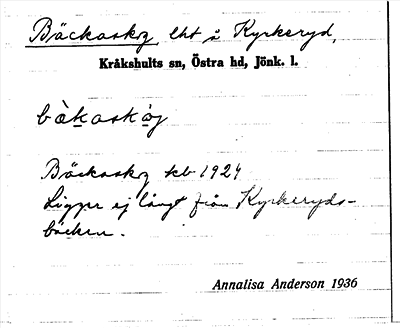 Bäckaskog, lht å Kyrkeryd,
Kråkshults sn, Östra hd, Jönk. l.
bàkaskóg
Bäckaskog kb 1924
Ligger ej långt från Kyrkeryds-
bäcken.
Annalisa Anderson 1936